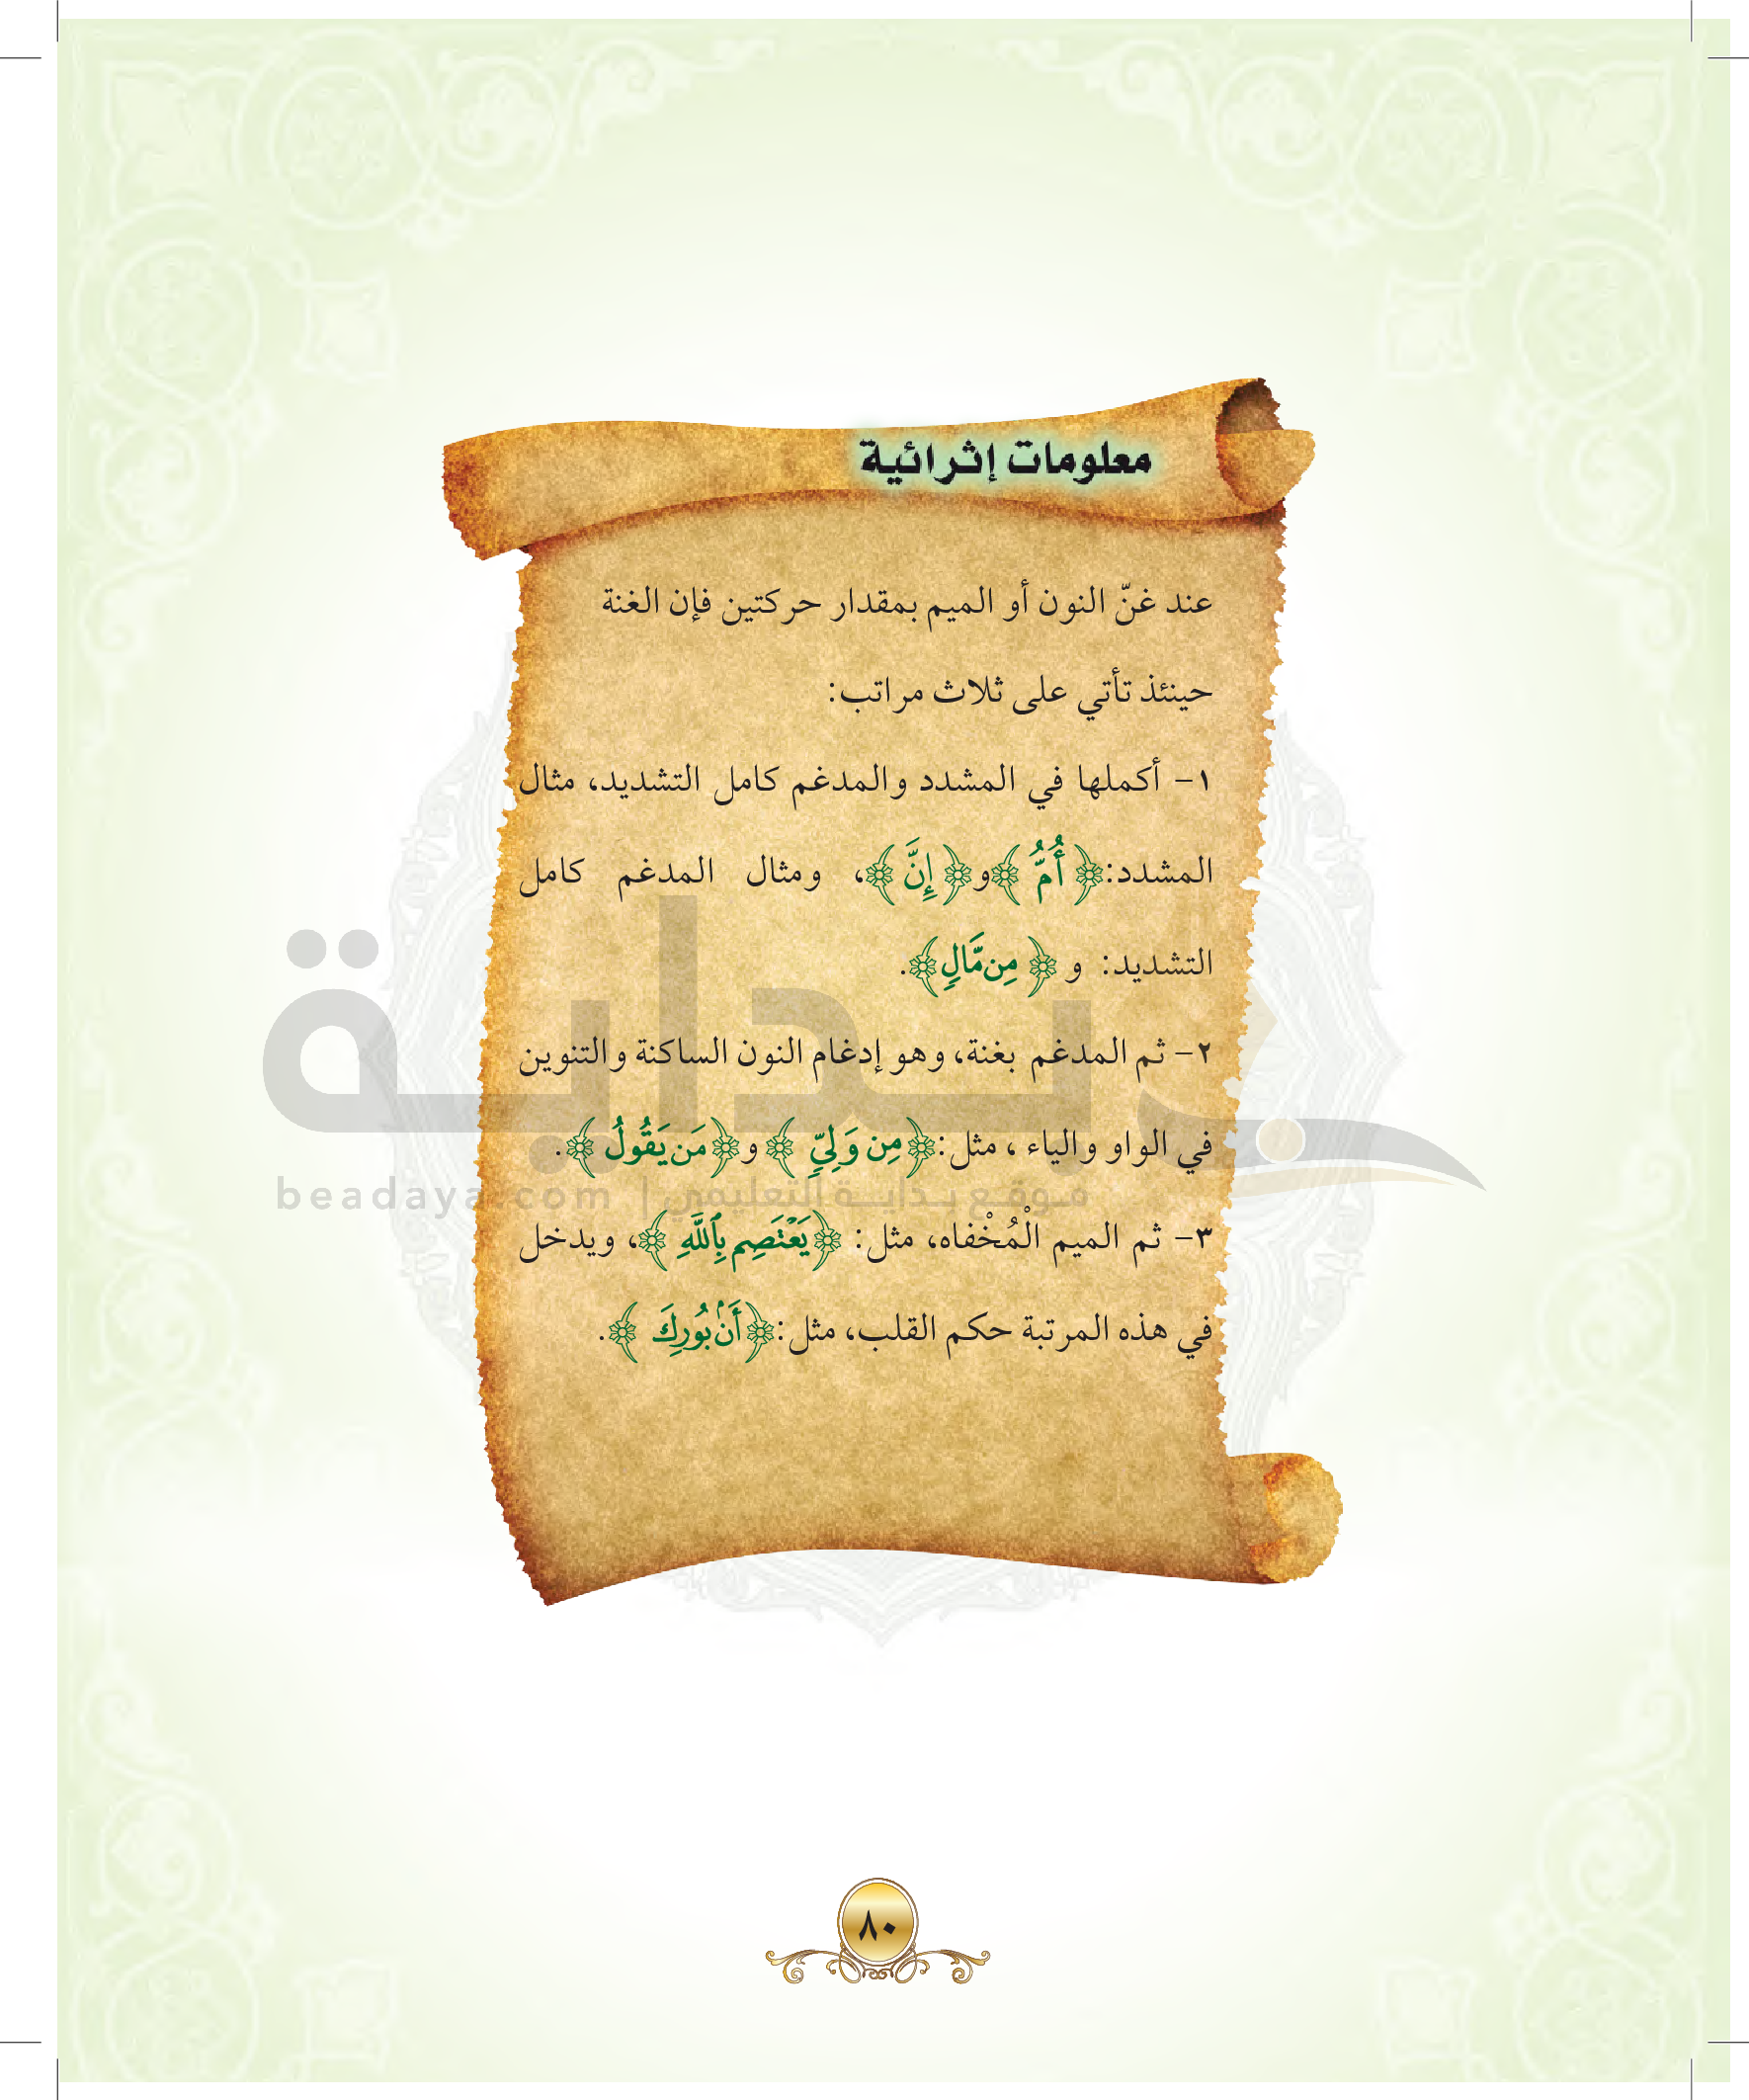 معلومات إثرائية
عند غنّ النون أو الميم بمقدار حركتين فإن الغنة
حينئذ تأتي على ثلاث مراتب:
١- أكملها في المشدد والمدغم كامل التشديد، مثال
المشدد: ﴿ أُمُّ ﴾ و ﴿ إِنَّ ﴾، ومثال المدغم كامل
التشديد: و ﴿ مِن مَّالِ ﴾.
٢- ثم المدغم بغنة، وهو إدغام النون الساكنة والتنوين
في الواو والياء ، مثل: ﴿ مِن وَلِيٍّ ﴾ و ﴿ مَن يَقُولُ ﴾.
٣- ثم الميم الْمُخْفاه، مثل: ﴿ يَعْتَصِم بِٱللَّهِ ﴾، ويدخل
في هذه المرتبة حكم القلب، مثل: ﴿ أَنۢ بُورِكَ ﴾.
بداية
موقع بداية التعليمي | beadaya.com
٨٠